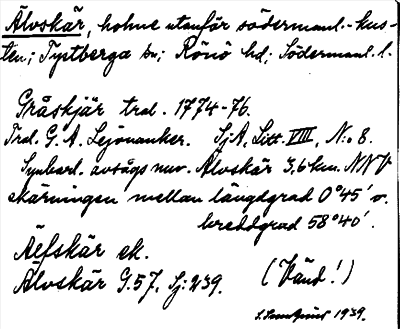 Älvskär, holme utanför södermanl.-kus-
ten; Tystberga sn; Rönö hd; Södermanl. l.
Gråskjär trol. 1774-76.
Trol. G. A. Lejonanker. SjA, Litt. VIII, N:o 8.
Synbarl. avsågs nuv. Älvskär 3,6 km. NNV
skärningen mellan längdgrad 0°45' o.
breddgrad 58°40'.
Äelfskär ek.
Älvskär G.57, Sj: 239.
(Vänd!)
1939.